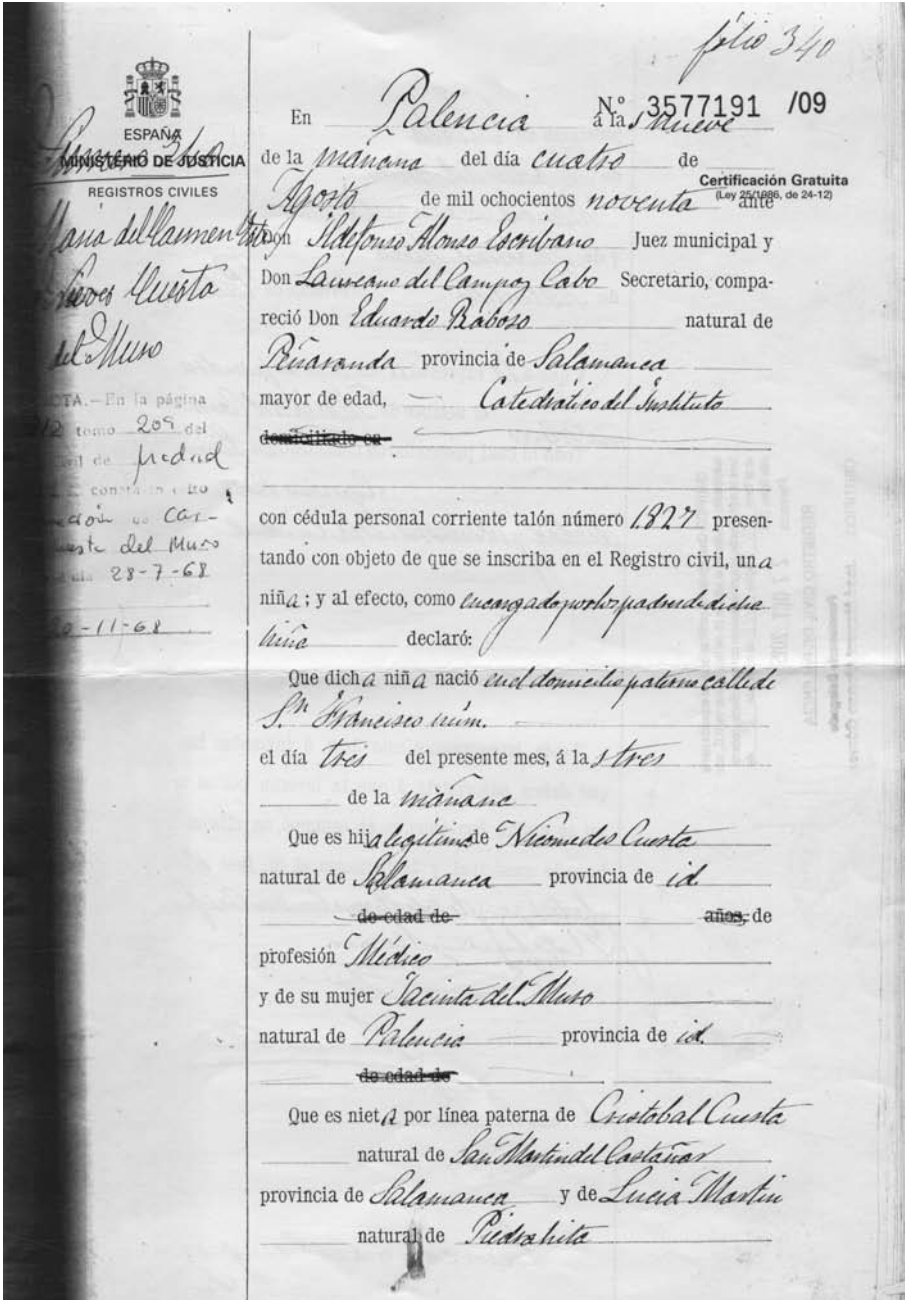 folio 340
ESPAÑA
MINISTERIO DE JUSTICIA
REGISTROS CIVILES
Maria del Carmen
Nieves Cuesta
del Muro
NOTA.—En la página
tomo 209 del
de Madrid
consta
Car-
del Muro
28-7-68
-11-68
Nº 3577191 /09
Certificación Gratuita
(Ley 25/1986, de 24-12)
En Palencia á las nueve
de la mañana del día cuatro de
Agosto de mil ochocientos noventa ante
Don Ildefonso Alonso Escribano Juez municipal y
Don Laureano del Campo y Cabo Secretario, compa-
reció Don Eduardo Raboso natural de
Peñaranda provincia de Salamanca
mayor de edad, Catedrático del Instituto
domiciliado en
con cédula personal corriente talón número 1827 presen-
tando con objeto de que se inscriba en el Registro civil, una
niña; y al efecto, como encargado por los padres de dicha
niña declaró:
Que dicha niña nació en el domicilio paterno calle de
Sn Francisco núm.
el día tres del presente mes, á las tres
de la mañana
Que es hija legitima de Nicomedes Cuesta
natural de Salamanca provincia de id
de edad de años, de
profesión Médico
y de su mujer Jacinta del Muro
natural de Palencia provincia de id.
de edad de
Que es nieta por línea paterna de Cristobal Cuesta
natural de San Martin del Castañar
provincia de Salamanca y de Lucia Martin
natural de Piedrahita